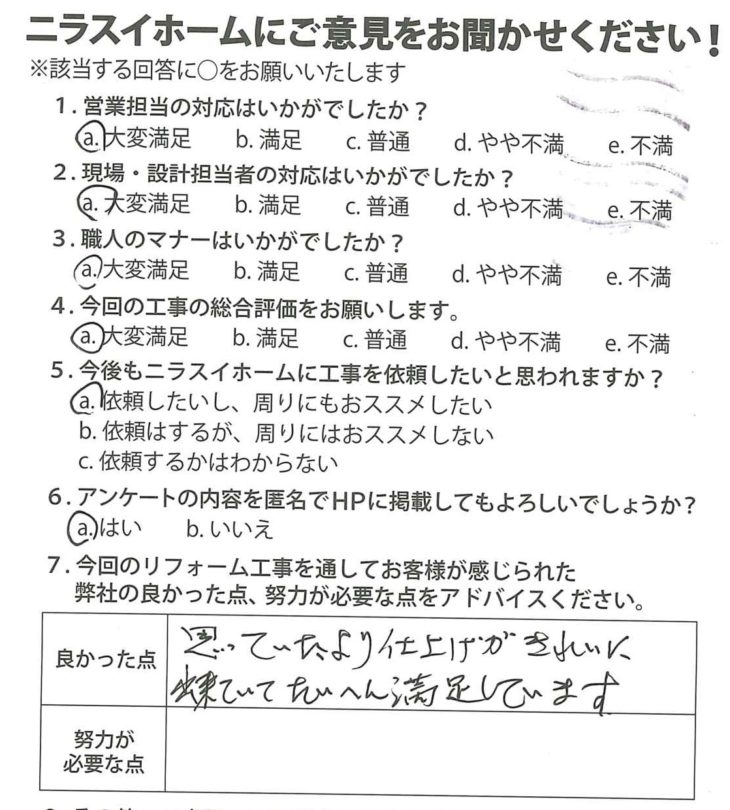 ニラスイホームにご意見をお聞かせください！
※該当する回答に○をお願いいたします
1. 営業担当の対応はいかがでしたか？
a. 大変満足 b. 満足 c. 普通 d. やや不満 e. 不満
2. 現場・設計担当者の対応はいかがでしたか？
a. 大変満足 b. 満足 c. 普通 d. やや不満 e. 不満
3. 職人のマナーはいかがでしたか？
a. 大変満足 b. 満足 c. 普通 d. やや不満 e. 不満
4. 今回の工事の総合評価をお願いします。
a. 大変満足 b. 満足 c. 普通 d. やや不満 e. 不満
5. 今後もニラスイホームに工事を依頼したいと思われますか？
a. 依頼したいし、周りにもおススメしたい
b. 依頼はするが、周りにはおススメしない
c. 依頼するかはわからない
6. アンケートの内容を匿名でHPに掲載してもよろしいでしょうか？
a. はい b. いいえ
7. 今回のリフォーム工事を通してお客様が感じられた
弊社の良かった点、努力が必要な点をアドバイスください。
良かった点
思っていたより仕上げがきれいに
ていてたいへん満足しています
努力が
必要な点